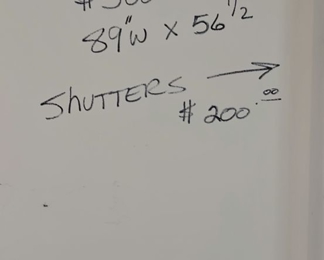 89"W x 56 1/2
SHUTTERS →
# 200.00